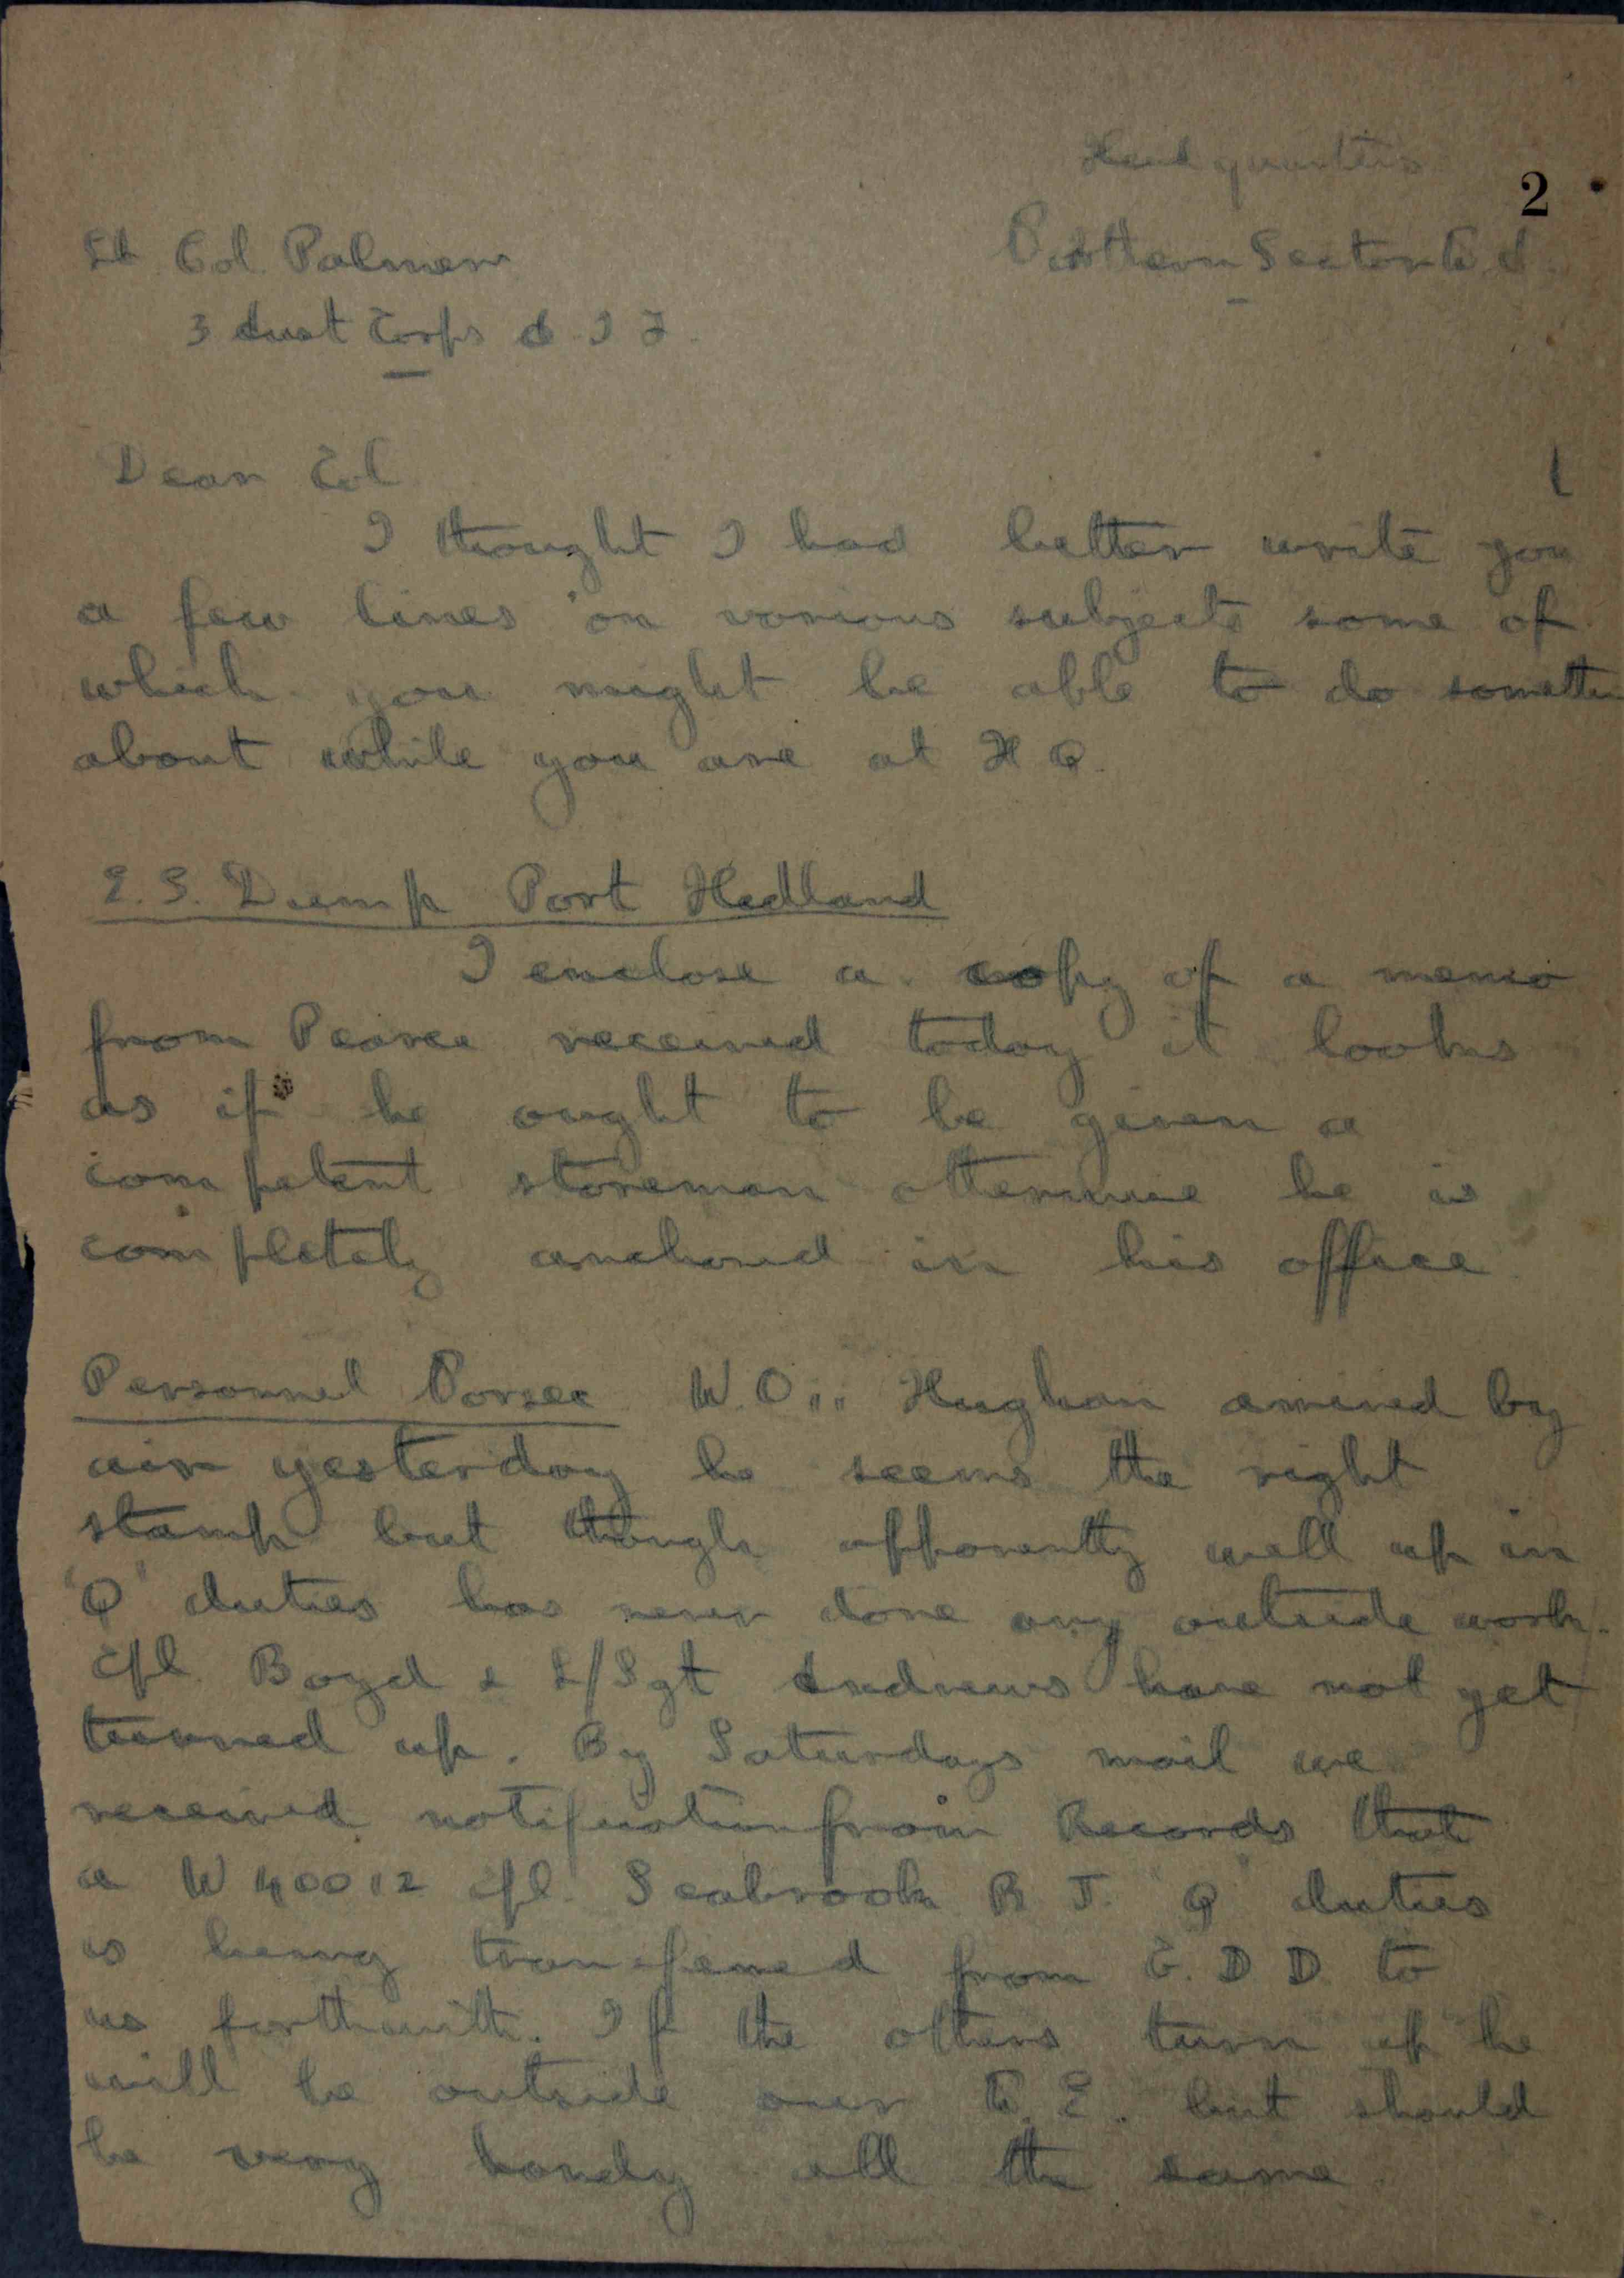 Headquarters
2
Lt. Col. Palmer
Northern Sector W A
3 Aust Corps A I F.
Dear Col
I thought I had better write you
a few lines on various subjects some of
which you might be able to do somethin
about while you are at H Q.
E. S. Dump Port Hedland
I enclose a copy of a memo
from Pearce received today it looks
as if he ought to be given a
competent storeman otherwise he is
completely anchored in his office.
Personnel W.O. II Hughan arrived by
air yesterday he seems the right
stamp but though apparently well up in
"Q" duties has never done any outside work.
Cpl. Boyd & L/Sgt Andrews have not yet
turned up. By Saturdays mail we
received notification from Records that
a W 40012 Cpl. Seabrook R T. "Q" duties
is being transferred from G. D D to
us forthwith. If the others turn up he
will be outside our W. E. but should
be very handy all the same.